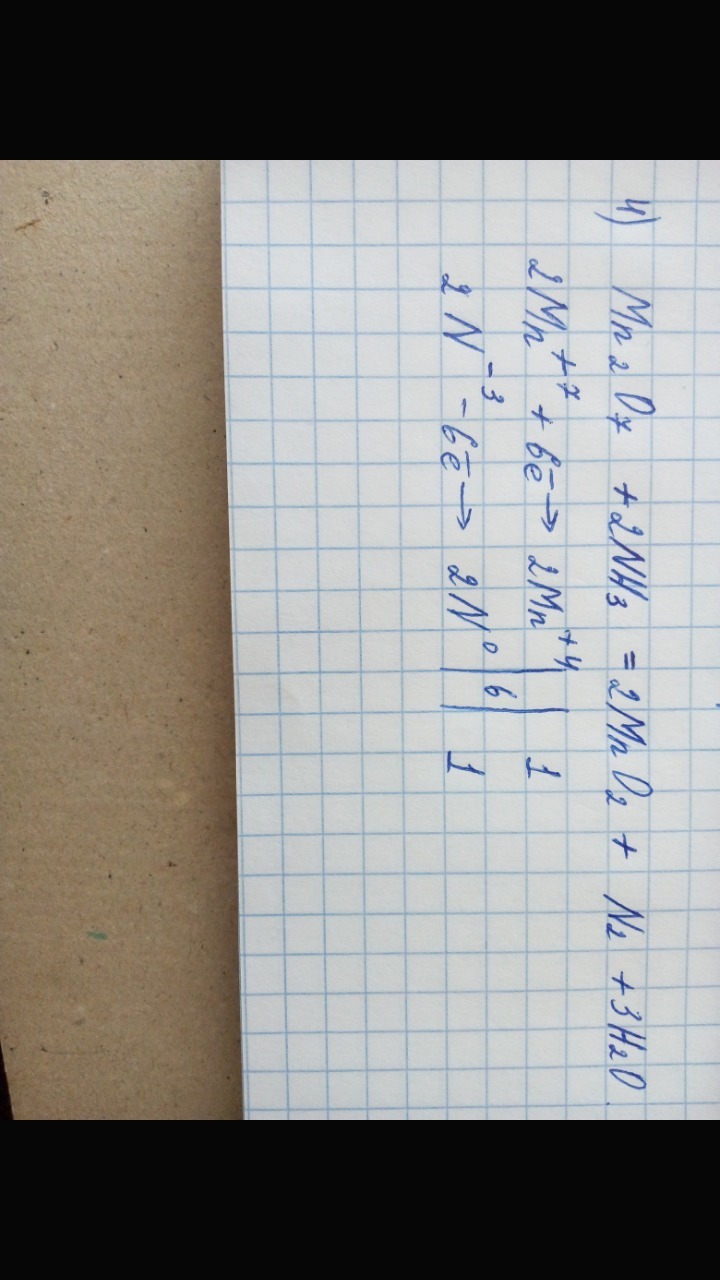 4) Mn₂O₇ + 2NH₃ = 2MnO₂ + N₂ + 3H₂O
2Mn⁺⁷ + 6ē → 2Mn⁺⁴ | | 1
2N⁻³ - 6ē → 2N⁰ | 6 | 1